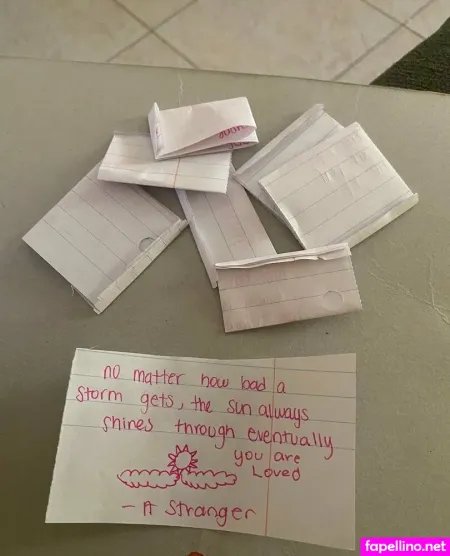 no matter how bad a
storm gets, the sun always
shines through eventually
you are
Loved
- A Stranger
fapellino.net